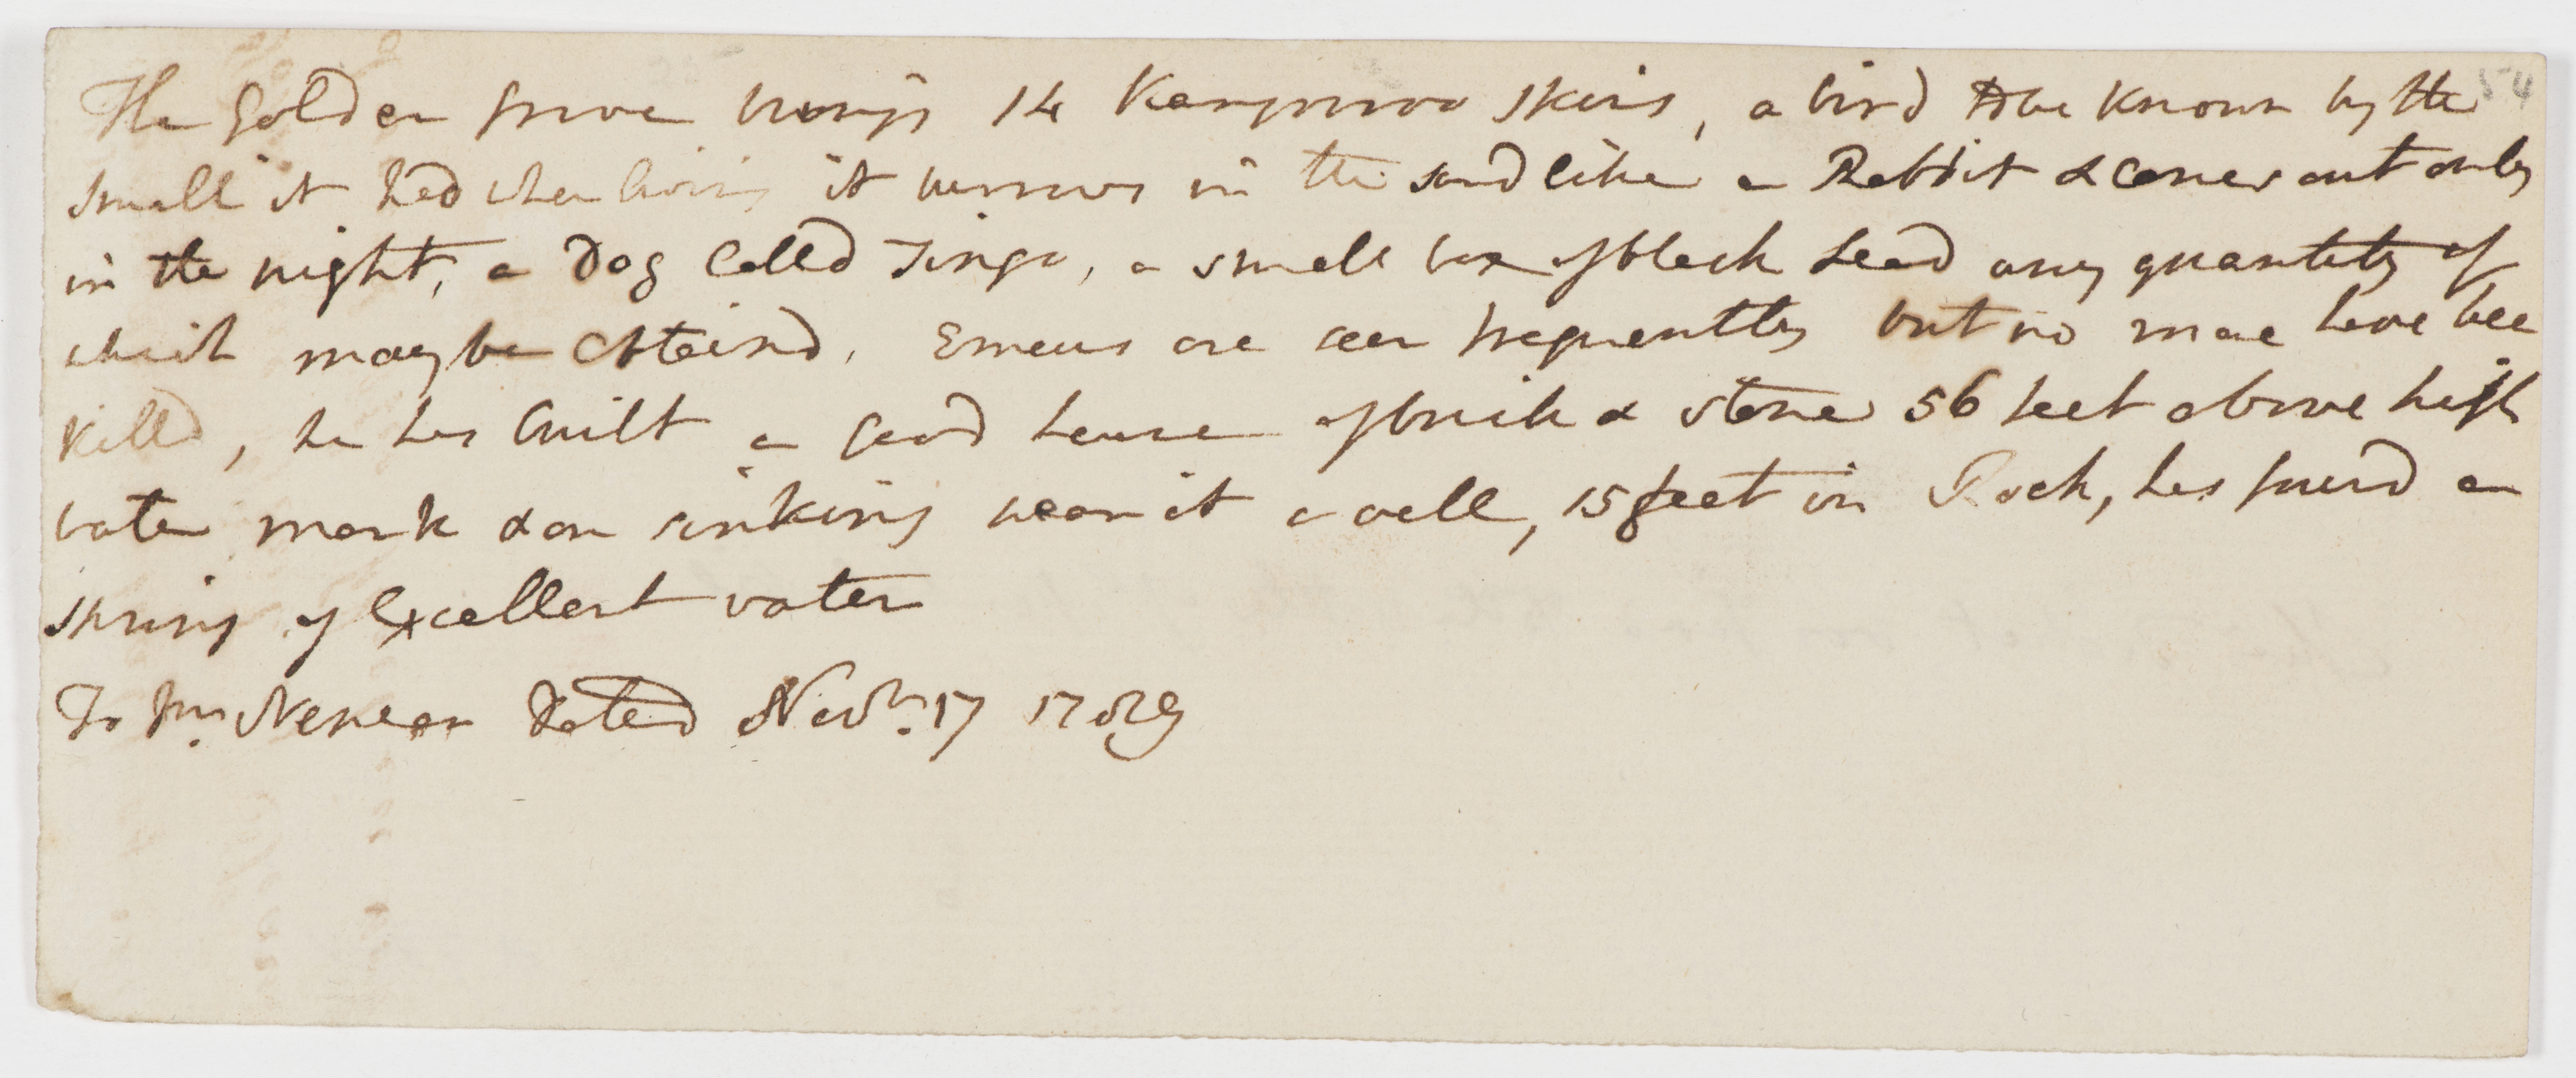 The Golden grove brings 14 Kanguroo Skins, a bird to be known by the 54
small it had when living it burrows in the sand like a Rabbit & comes out only
in the night, a Dog calld Tingo, a small box of black Lead any quantity of
which may be Obtaind. Emeus are seen frequently but no more have bee
killd, he has built a good house of brick & stone 56 feet above high
water mark & on sinking near it a well, 15 feet in Rock, has found a
spring of Excellent water
To Mr. Nepean dated Novr. 17 1789